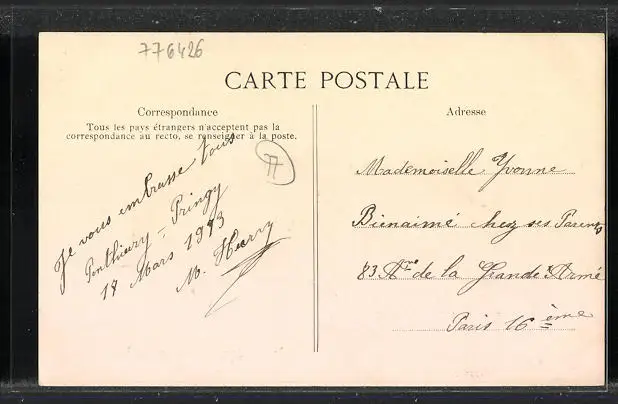 776426
CARTE POSTALE
Correspondance
Tous les pays étrangers n'acceptent pas la
correspondance au recto, se renseigner à la poste.
77
Je vous embrasse tous
Ponthierry - Pringy
18 Mars 1913
M. Huary
Adresse
Mademoiselle Yvonne
Bienaimé chez ses Parents
83 Ave de la Grande Armé
Paris 16 ème